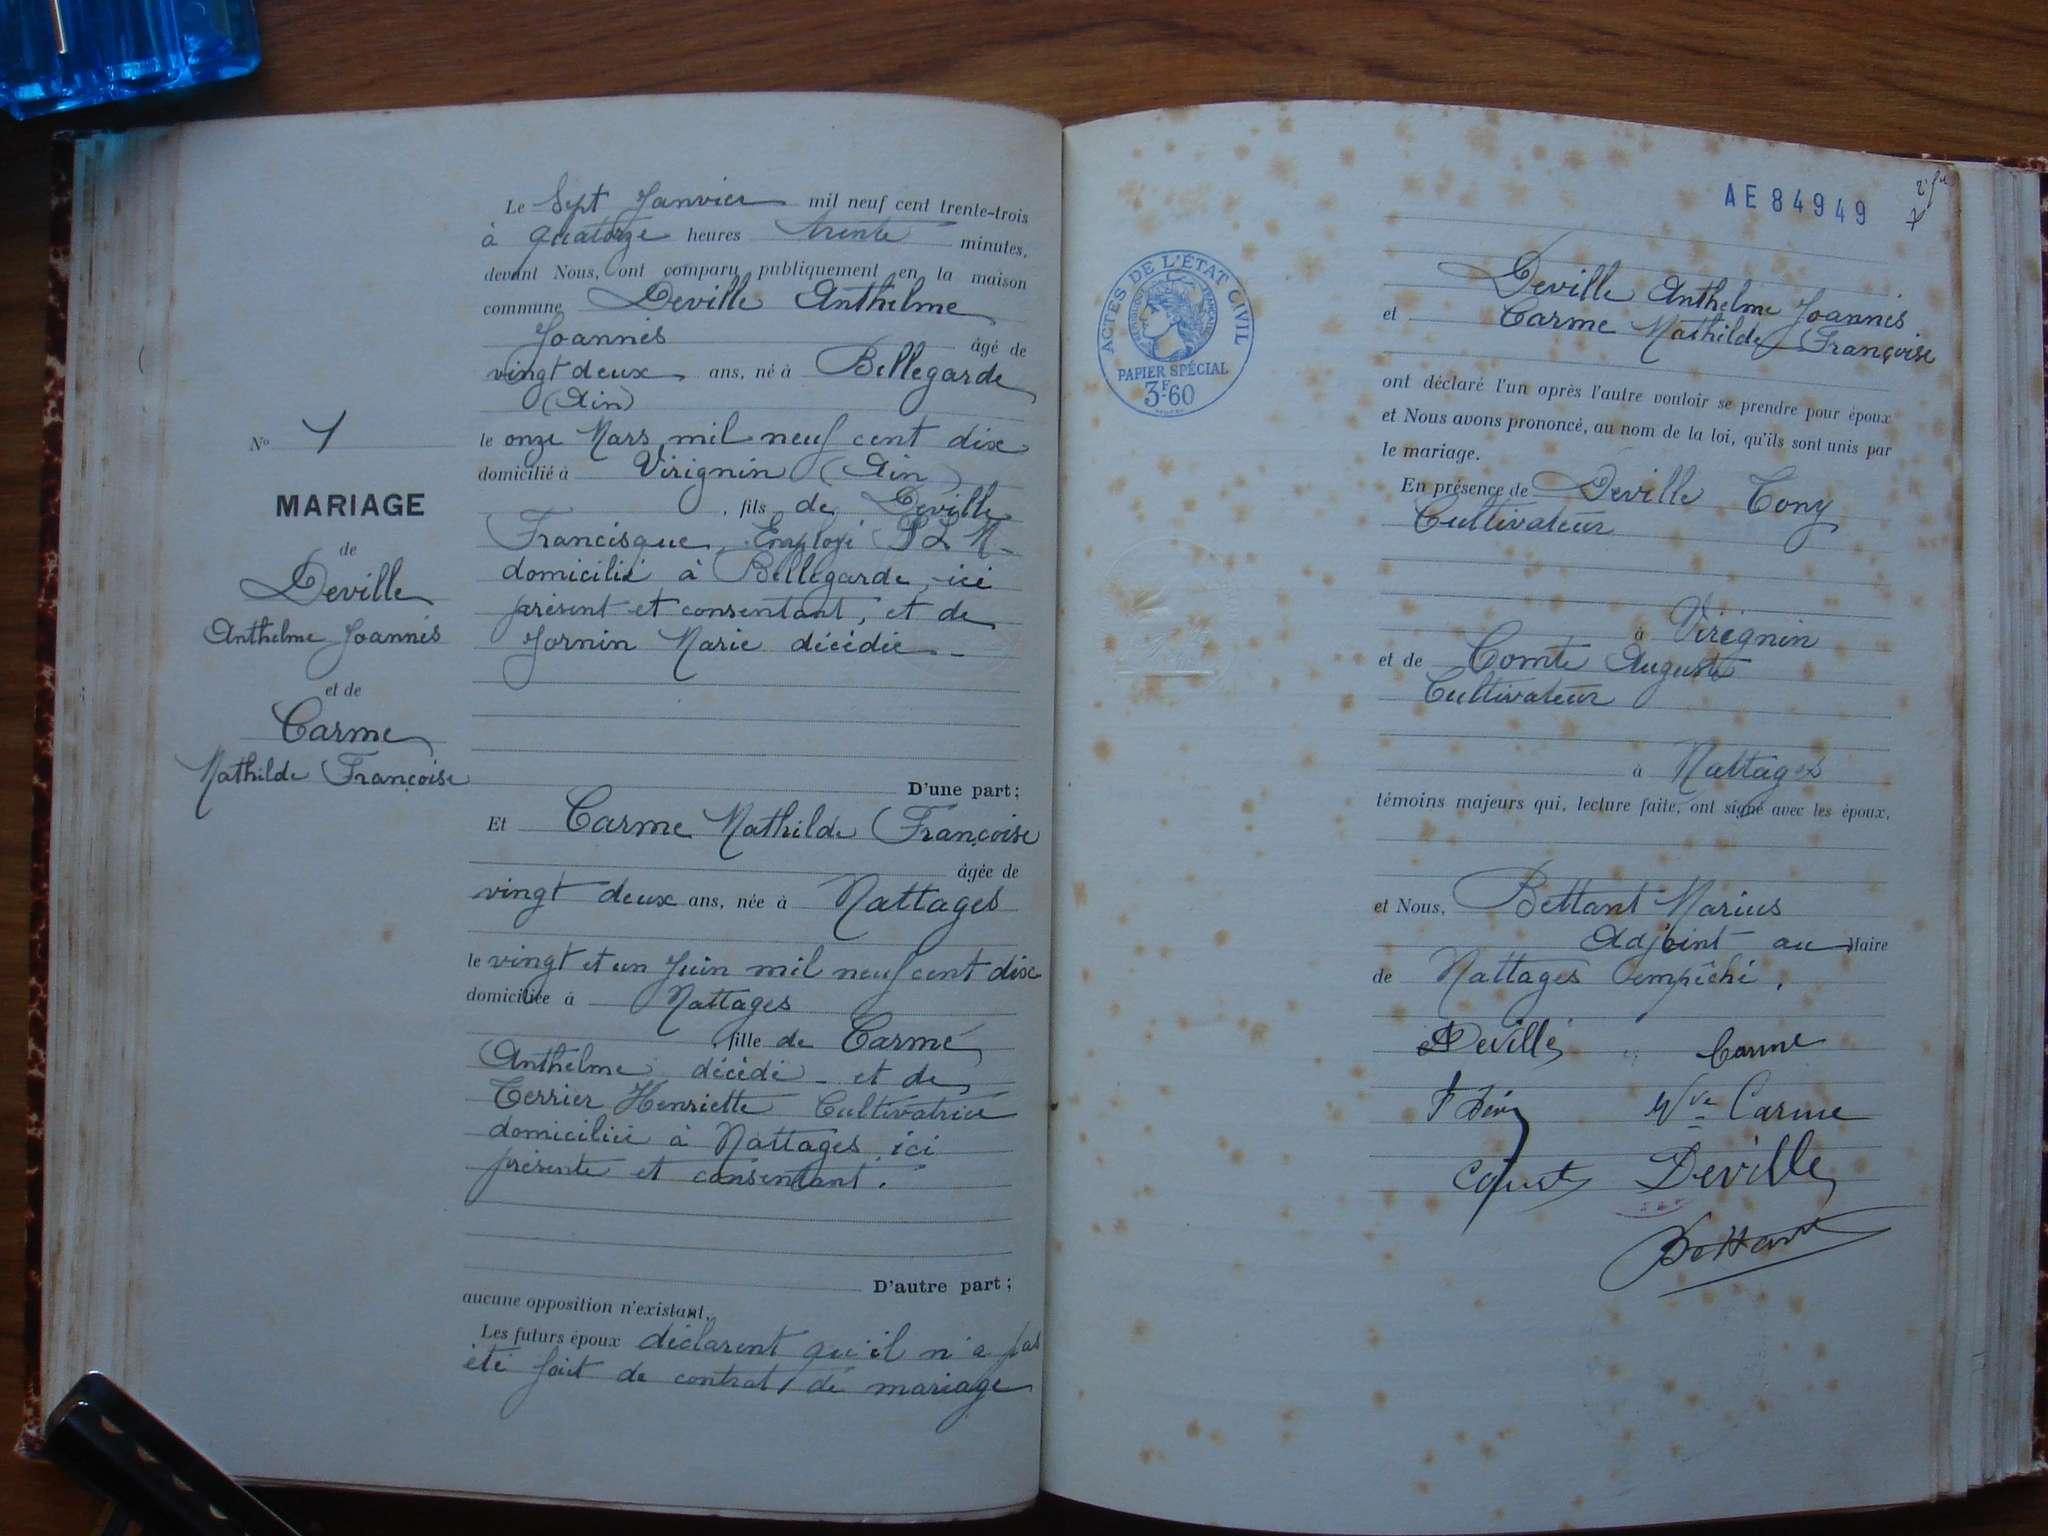 Le Sept Janvier mil neuf cent trente-trois
à quatorze heures trente minutes,
devant Nous, ont comparu publiquement en la maison
commune Deville Anthelme
Joannès âgé de
vingt deux ans, né à Bellegarde
(Ain)
le onze Mars mil neuf cent dix
domicilié à Virignin (Ain)
, fils de Deville
Francisque, Employé P L M
domicilié à Bellegarde, ici
présent et consentant, et de
Jornin Marie décédée
D'une part;
Et Carme Mathilde Françoise
âgée de
vingt deux ans, née à Nattages
le vingt et un Juin mil neuf cent dix
domiciliée à Nattages
fille de Carme
Anthelme décédé et de
Terrier Henriette Cultivatrice
domiciliée à Nattages, ici
présente et consentant.
D'autre part;
aucune opposition n'existant,
Les futurs époux déclarent qu'il n'a pas
été fait de contrat de mariage
No 1
MARIAGE
de
Deville
Anthelme Joannès
et de
Carme
Mathilde Françoise
AE84949
ACTES DE L'ÉTAT CIVIL
RÉPUBLIQUE FRANÇAISE
PAPIER SPÉCIAL
3F60
Deville Anthelme Joannès
et Carme Mathilde Françoise
ont déclaré l'un après l'autre vouloir se prendre pour époux
et Nous avons prononcé, au nom de la loi, qu'ils sont unis par
le mariage.
En présence de Deville Tony
Cultivateur
à Virignin
et de Comte Auguste
Cultivateur
à Nattages
témoins majeurs qui, lecture faite, ont signé avec les époux,
et Nous, Bettant Marius
Adjoint au Maire
de Nattages empêché.
Deville Carme
Vve Carme
Deville
Bettant